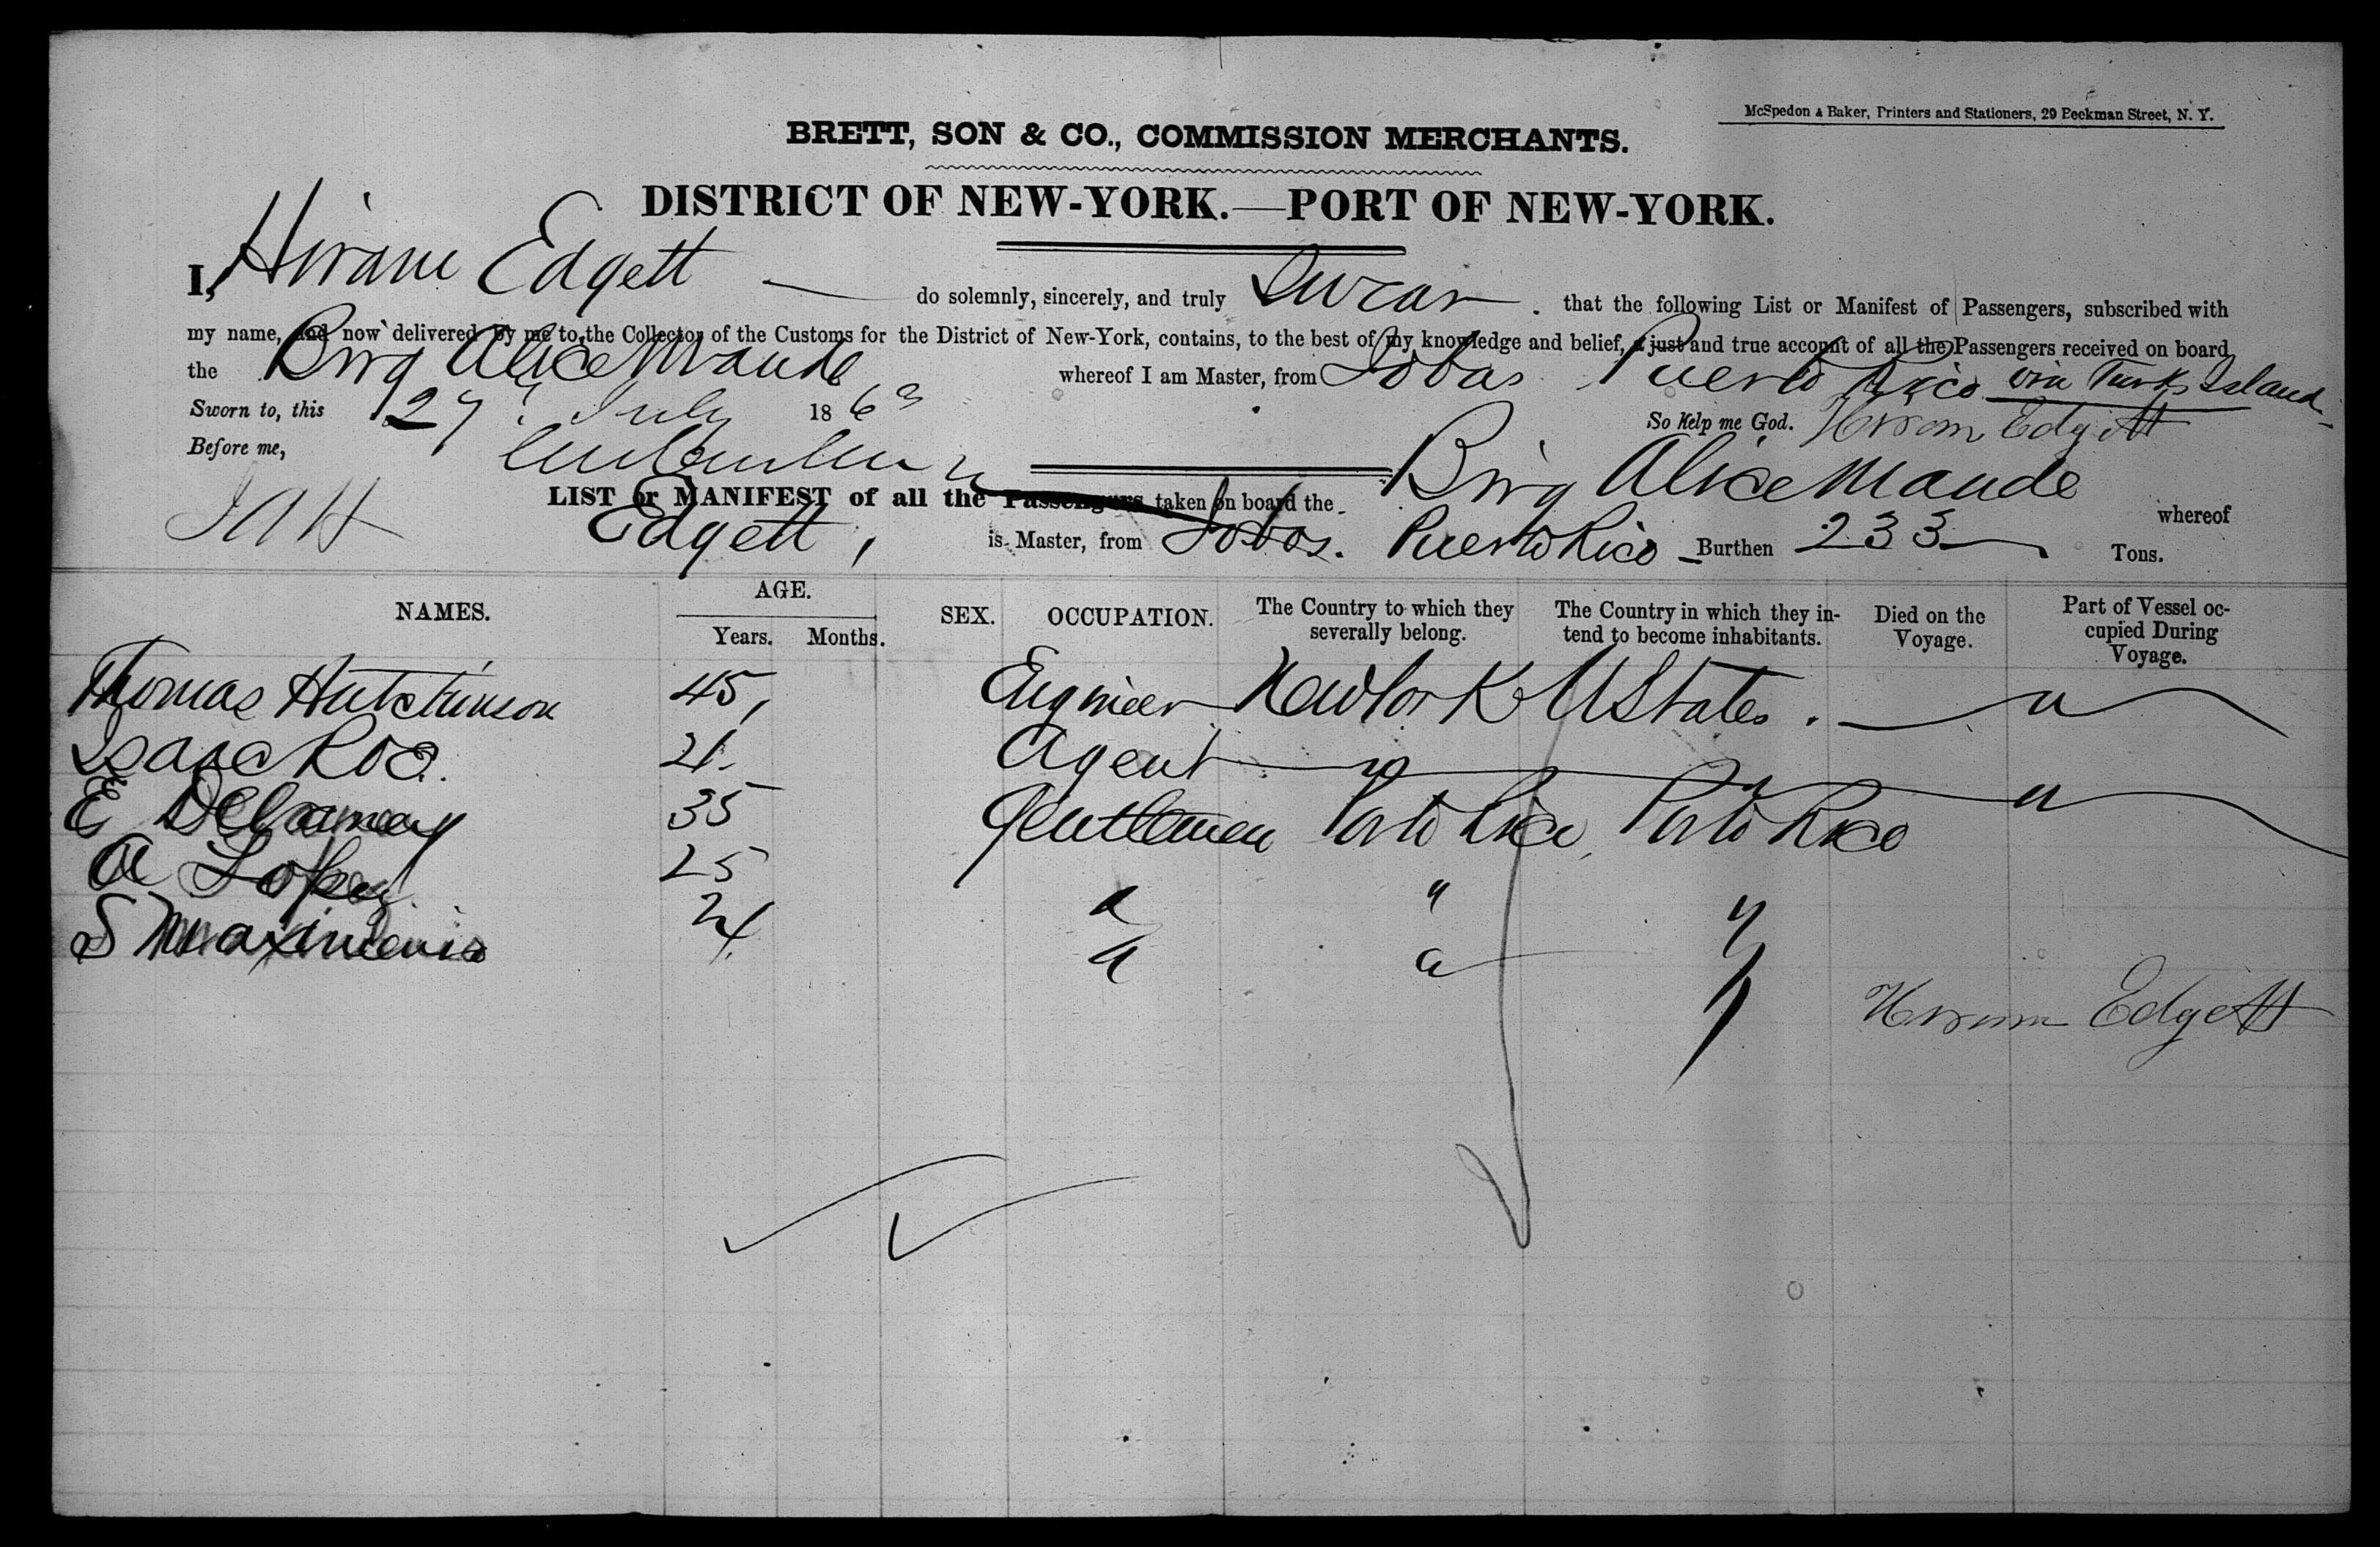 McSpedon & Baker, Printers and Stationers, 29 Beekman Street, N. Y.
BRETT, SON & CO., COMMISSION MERCHANTS.
DISTRICT OF NEW-YORK.—PORT OF NEW-YORK.
I, Hiram Edgett — do solemnly, sincerely, and truly Swear that the following List or Manifest of Passengers, subscribed with
my name, and now delivered by me to the Collector of the Customs for the District of New-York, contains, to the best of my knowledge and belief, a just and true account of all the Passengers received on board
the Brig Alice Maude whereof I am Master, from Lobos Puerto Rico via Turks Island
Sworn to, this 27 July 186 So help me God. Hiram Edgett
Before me,
LIST or MANIFEST of all the Passengers taken on board the Brig Alice Maude whereof
Edgett, is Master, from Lobos. Puerto Rico — Burthen 233 — Tons.
NAMES. AGE. Years. Months. SEX. OCCUPATION. The Country to which they severally belong. The Country in which they intend to become inhabitants. Died on the Voyage. Part of Vessel occupied During Voyage.
Thomas Hutchinson 45, Engineer New York U States. "
Isaac Roe. 21. Agent " " "
E 35 Gentlemen Porto Rico, Porto Rico
A Lopez 25 " " "
S 24 " " "
Hiram Edgett